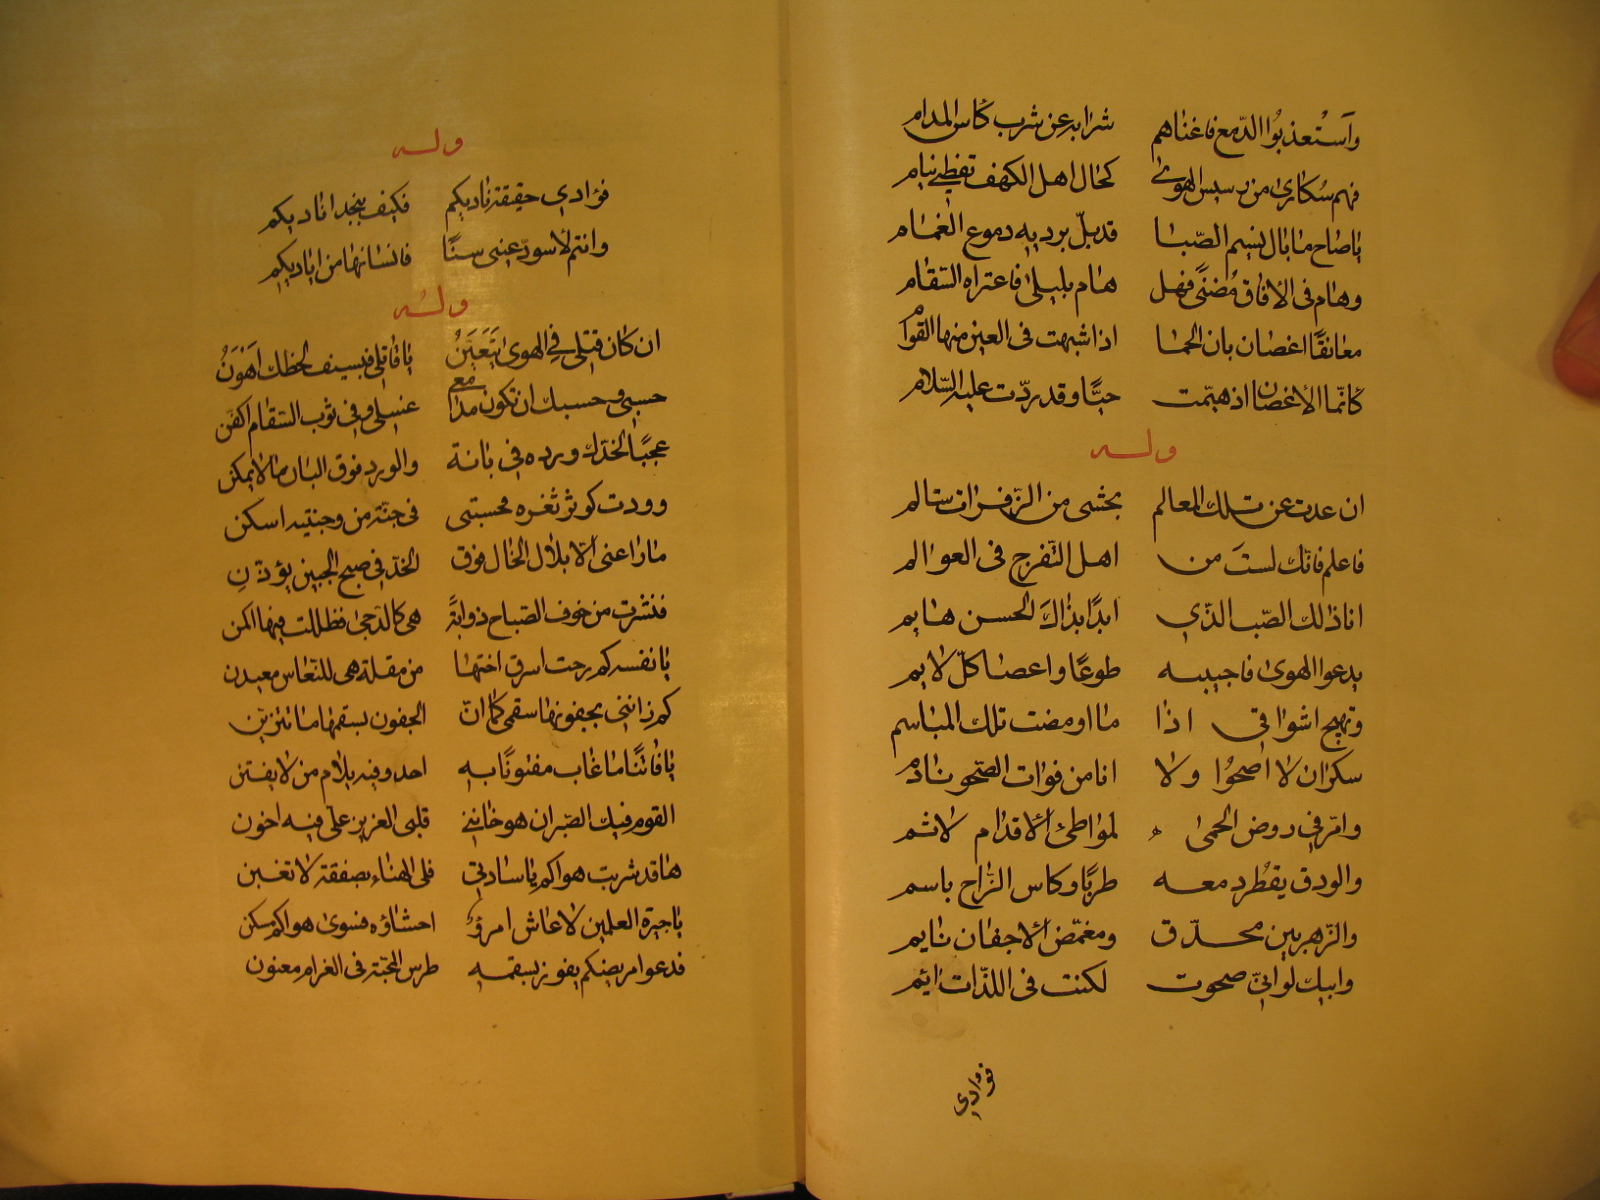 واستعذبوا الدمع فاغناهم شرابه عن شرب كاس المدام
فهم سكارى من رسيس الهوى كحال اهل الكهف تفظي نيام
ياصاح ما بال نسيم الصبا قد بل برديه دموع الغمام
وهام فى الافاق مضنى فهل هام بليلى فاعتراه السقام
معانقا اغصان بان الحما اذا شبهت فى العين منها القوام
كانما الاغصان اذ هيمت حيا وقد ردت عليه السلام
وله
ان عدت عن تلك المعالم بحشى من الزفرات سالم
فاعلم فانك لست من اهل التفرج فى العوالم
انا ذلك الصب الذي ابدا بذاك الحسن هايم
يدعوا الهوى فاجيبه طوعا واعصا كل لايم
وتهيج اشواقي اذا ما اومضت تلك المباسم
سكران لا اصحوا ولا انا من فوات الصحو نادم
وامر في روض الحمى لمواطئ الاقدام لاثم
والودق يقطر دمعه طربا وكاس الراح باسم
والزهر بين محدق ومغمض الاجفان نايم
وابيك لو اني صحوت لكنت فى اللذات ايم
فوادي
وله
فؤادي حقيقة ناديكم فكيف بنجد اناديكم
وانتم لاسود عينى سنا فانسانها من اياديكم
وله
ان كان قتلي في الهوى يتعين يا قاتلي فبسيف لحظك اهون
حسبي وحسبك ان تكون مدامعي غسلي وفي ثوب السقام اكفن
عجبا لخدك ورده في بانة والورد فوق البان ما لا يمكن
ووردت كوثر ثغره فحسبتنى فى جنة من وجنتيه اسكن
ما راعنى الا بلال الخال فوق الخد فى صبح الجبين يؤذن
فنشرت من خوف الصباح ذوابة هى كالدجى فظللت فيها اكمن
يا نفسه كم رحت اسرق اختها من مقلة هى للنعاس معيدن
كم زاننى بجفونها سقمى كما ان الجفون بسقمها ما تتزين
يا فاتنا ما غاب مفتونا به احد وفيه يلام من لا يفتن
القوم فيك الصبر ان هو خاننى قلبى العزيز على فيه اخون
ها قد شربت هواكم يا سادتي فلى الهناء بصفقة لا تغبن
يا جيرة العلمين لا عاش امرؤ احشاؤه فسوى هواكم مسكن
فدعوا مريضكم يفوز بسقمه طرس المحبة فى الغرام معنون